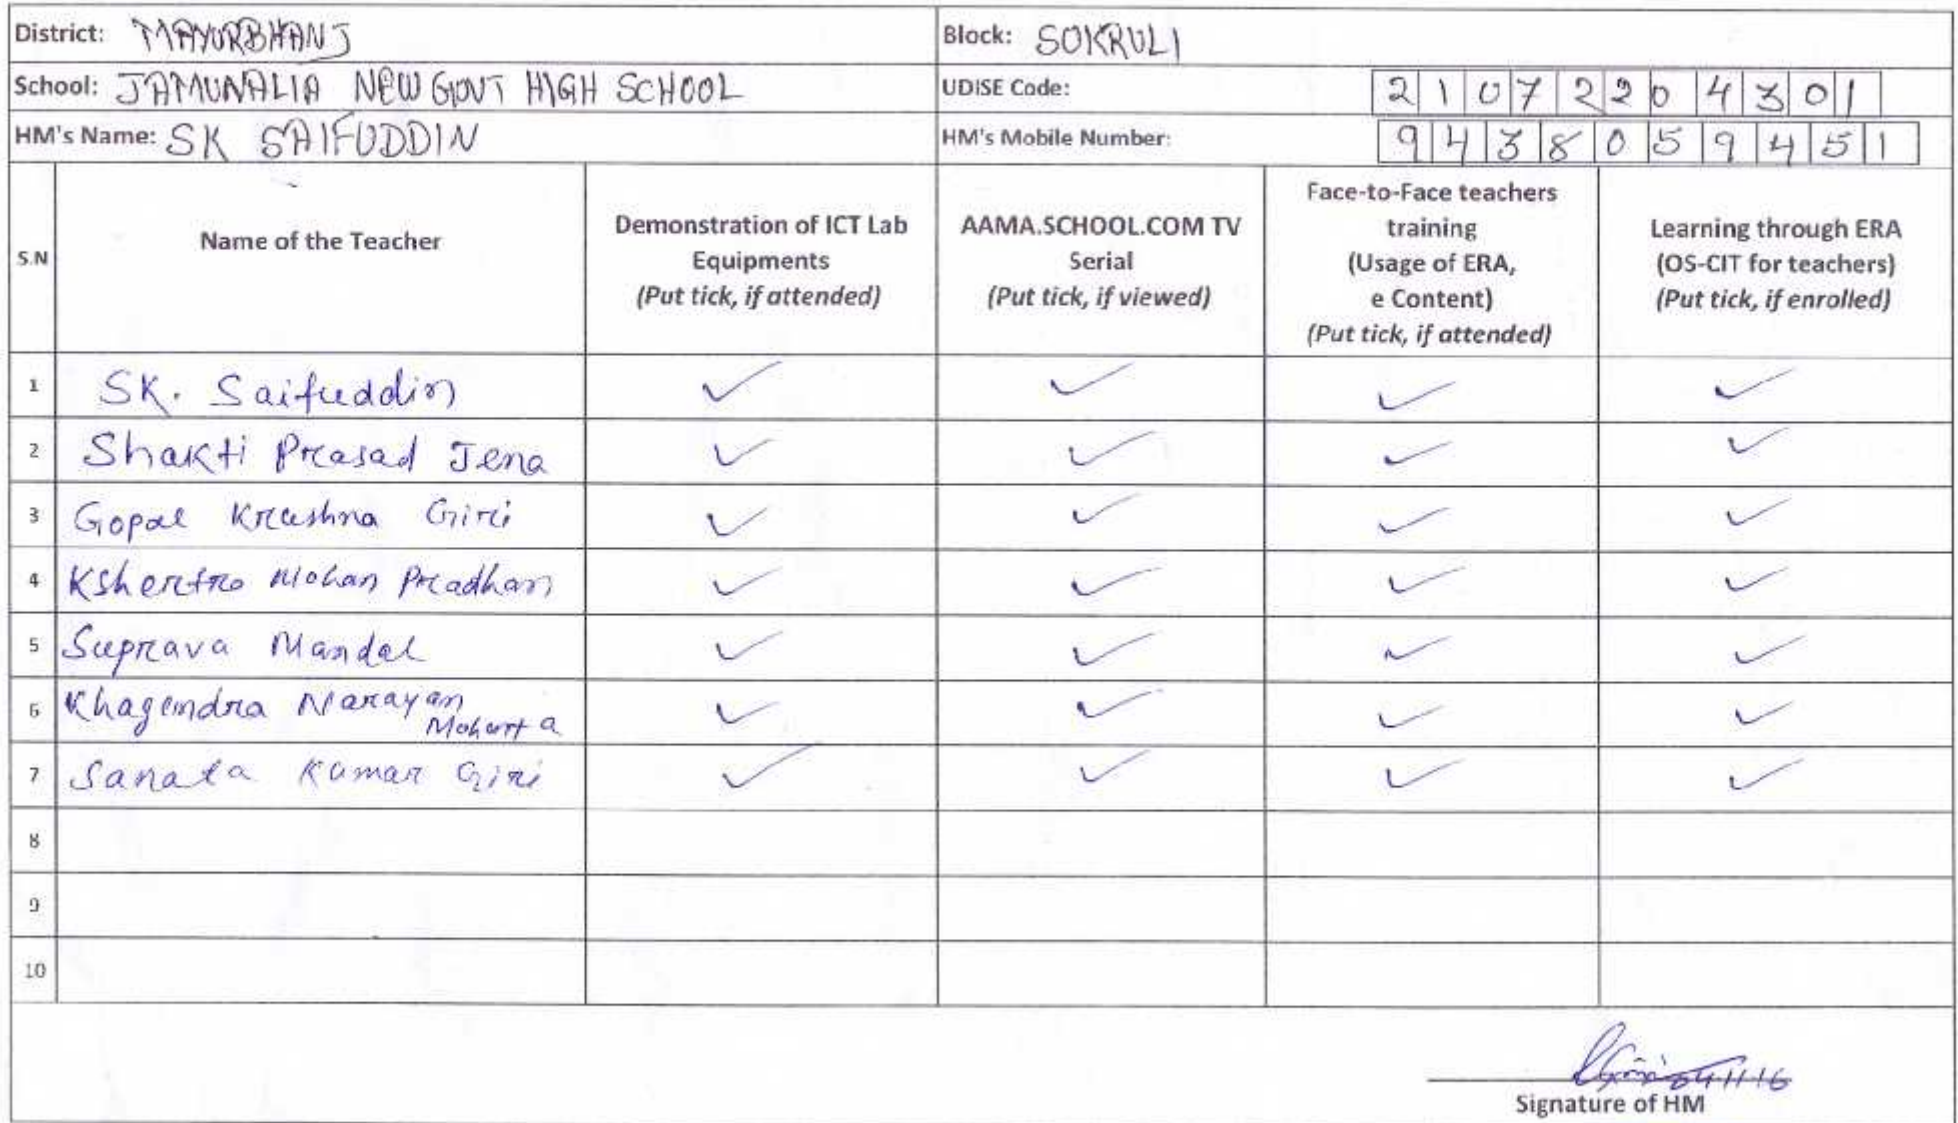 District: MAYURBHANJ Block: SUKRULI
School: JAMUNALIA NEW GOVT HIGH SCHOOL UDISE Code: 2 1 0 7 2 2 0 4 3 0 1
HM's Name: SK SAIFUDDIN HM's Mobile Number: 9 4 3 8 0 5 9 4 5 1
S.N Name of the Teacher Demonstration of ICT Lab Equipments (Put tick, if attended) AAMA.SCHOOL.COM TV Serial (Put tick, if viewed) Face-to-Face teachers training (Usage of ERA, e Content) (Put tick, if attended) Learning through ERA (OS-CIT for teachers) (Put tick, if enrolled)
1 SK. Saifuddin ✓ ✓ ✓ ✓
2 Shakti Prasad Jena ✓ ✓ ✓ ✓
3 Gopal Krushna Giri ✓ ✓ ✓ ✓
4 Mohan Pradhan ✓ ✓ ✓ ✓
5 Suprava Mandal ✓ ✓ ✓ ✓
6 Khagendra Narayan ✓ ✓ ✓ ✓
Mohanta
7 Sanata Kumar Giri ✓ ✓ ✓ ✓
8
9
10
Signature of HM